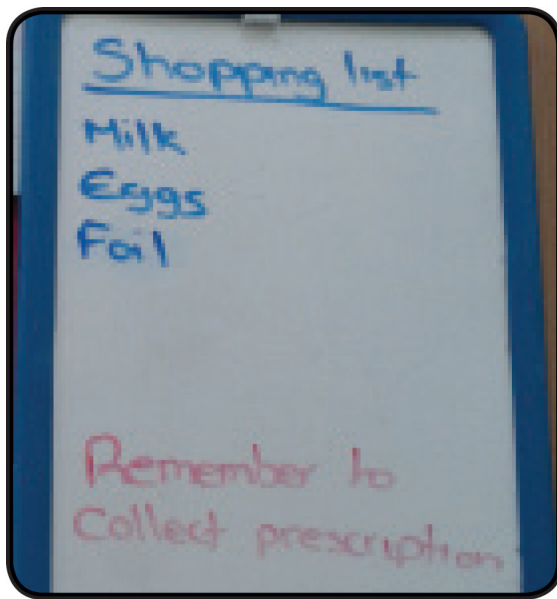 Shopping list
Milk
Eggs
Foil
Remember to
Collect prescription